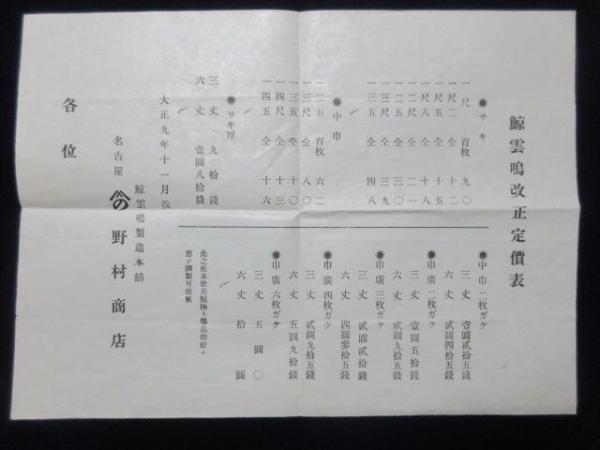 鯨雲鳴改正定價表
●サキ
一尺 百枚 九〇
一尺二 仝 一〇
一尺五 仝 十五
一尺八 仝 十八
二尺 仝 二一
二五 仝 三〇
三尺 仝 三九
三五 仝 四八
●中巾
二二五 百枚 六二
三尺 仝 八〇
三五 仝 一〇
四尺 仝 十三
四五 仝 十六
●サキ厚
三丈 九拾錢
六丈 壹圓八拾錢
●中巾一枚ガケ
三丈 壹圓貳拾五錢
六丈 貳圓四拾五錢
●巾廣二枚ガケ
三丈 壹圓五拾錢
六丈 貳圓九拾五錢
●巾廣三枚ガケ
三丈 貳圓貳拾錢
六丈 四圓參拾五錢
●巾廣四枚ガケ
三丈 貳圓九拾五錢
六丈 五圓九拾錢
●巾廣六枚ガケ
三丈 五圓〇
六丈 拾圓
大正九年十一月改
鯨雲鳴製造本舗
名古屋 野村商店
各位